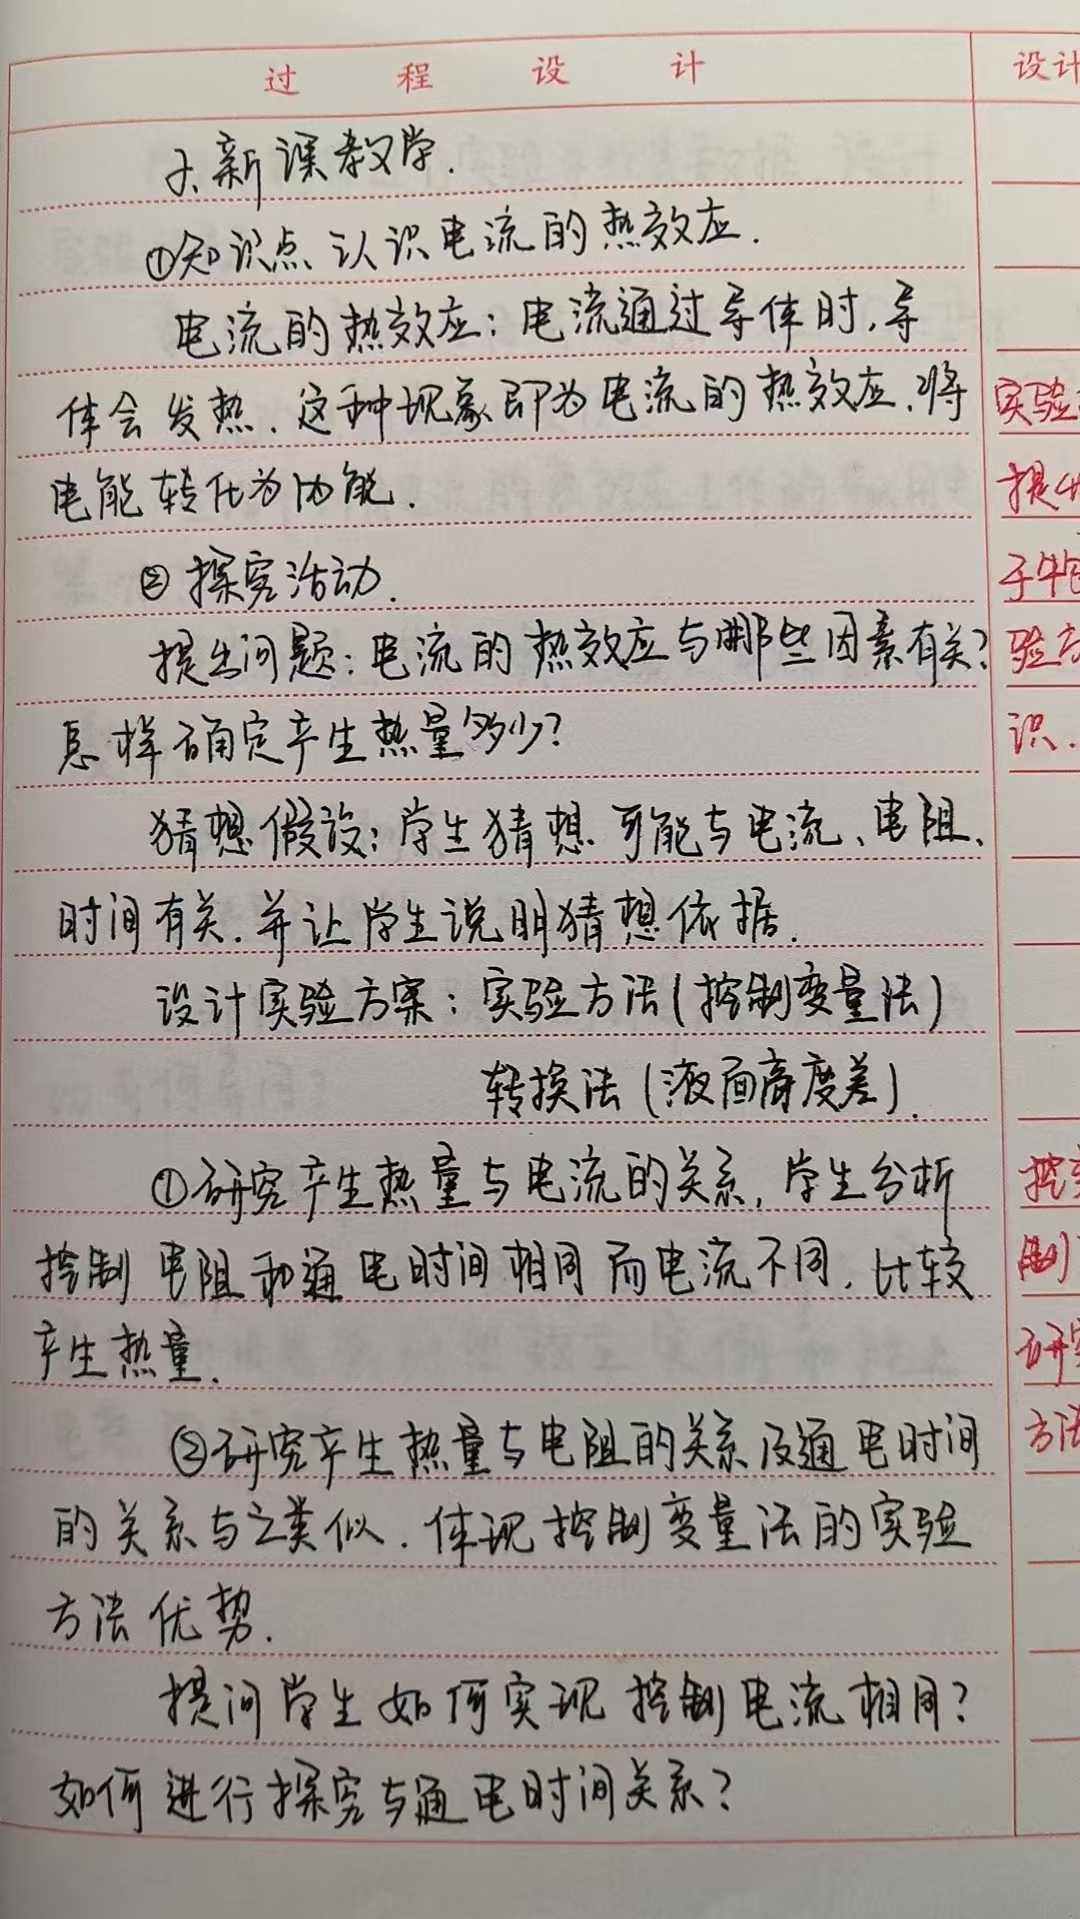 过 程 设 计
设计
2、新课教学.
①知识点 认识电流的热效应.
电流的热效应：电流通过导体时,导
体会发热.这种现象即为电流的热效应.将
电能转化为内能.
②探究活动.
提出问题：电流的热效应与哪些因素有关?
怎样确定产生热量多少?
猜想假设：学生猜想可能与电流、电阻、
时间有关.并让学生说明猜想依据.
设计实验方案：实验方法(控制变量法)
转换法(液面高度差).
①研究产生热量与电流的关系,学生分析
控制电阻和通电时间相同而电流不同.比较
产生热量.
②研究产生热量与电阻的关系及通电时间
的关系与之类似.体现控制变量法的实验
方法优势.
提问学生如何实现控制电流相同?
如何进行探究与通电时间关系?
实验
提
于
验
识.
控
制
研究
方法